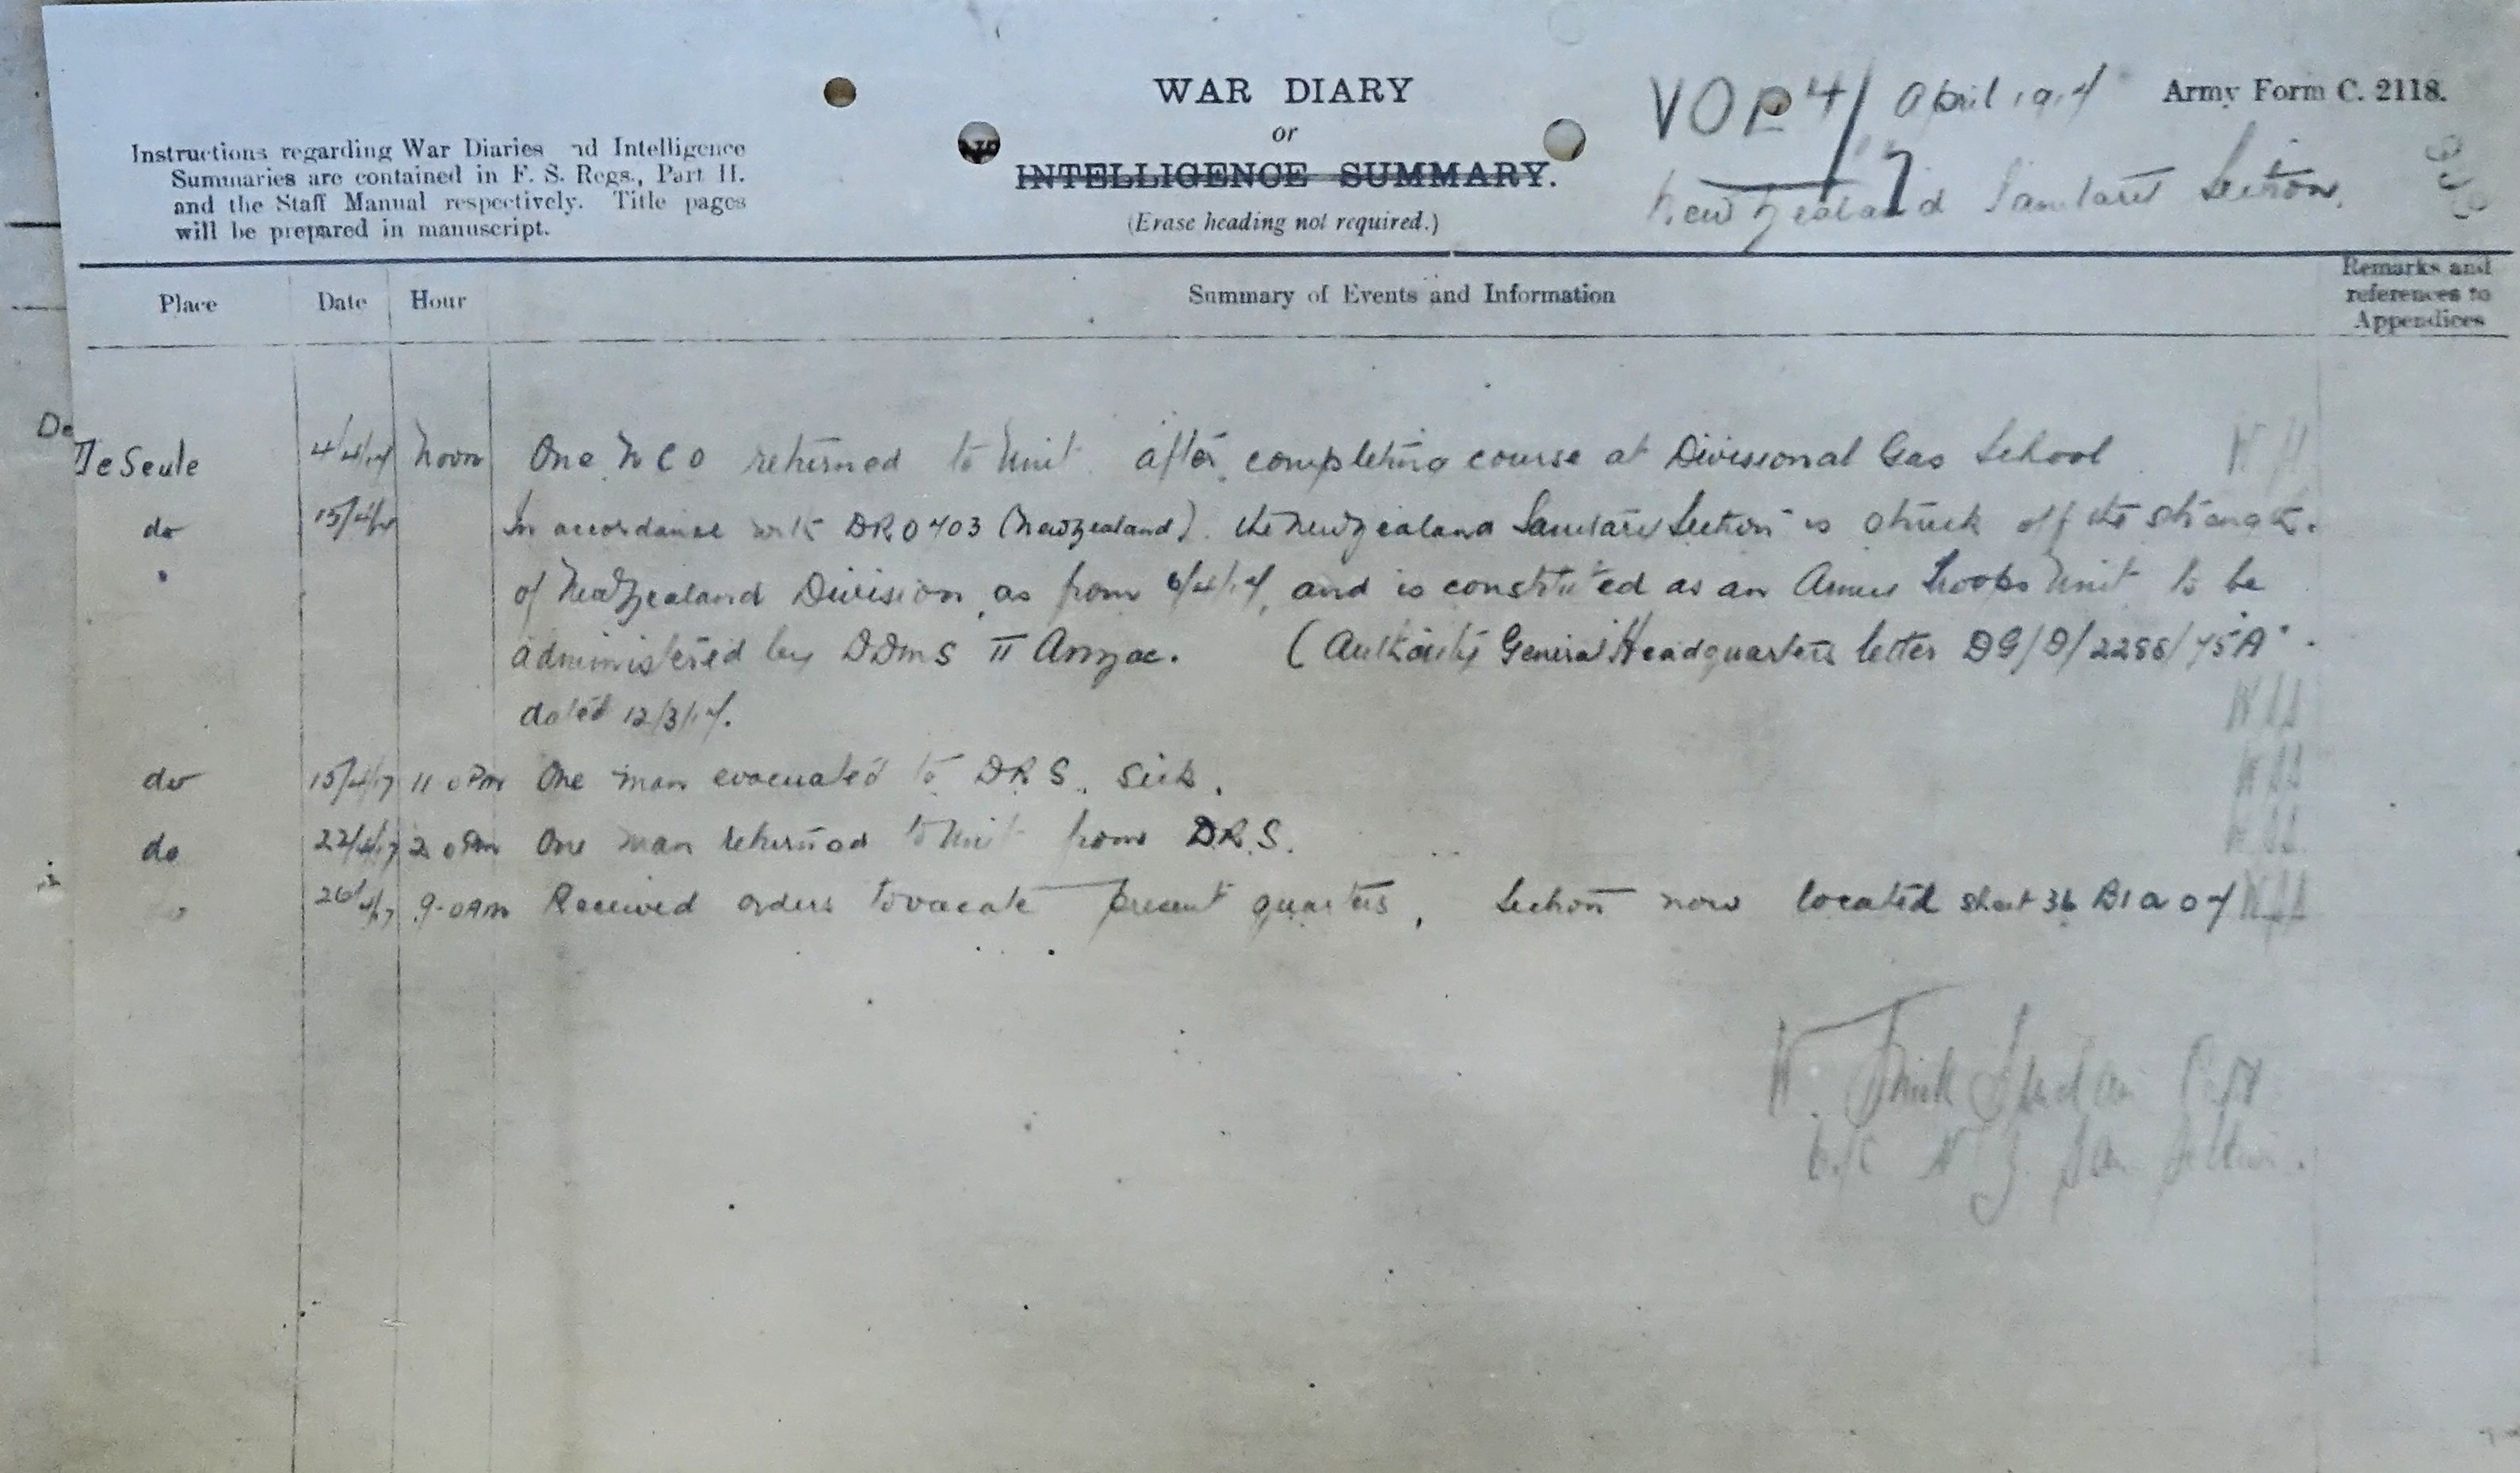 WAR DIARY
or
INTELLIGENCE SUMMARY.
(Erase heading not required.)
Instructions regarding War Diaries nd Intelligence
Summaries are contained in F. S. Regs., Part II.
and the Staff Manual respectively. Title pages
will be prepared in manuscript.
April 1917 Army Form C. 2118.
New Zealand Sanitary Section.
Place Date Hour Summary of Events and Information Remarks and references to Appendices
De
De Seule 4/4/17 Noon One NCO returned to Unit after completing course at Divisional Gas School
do 15/4/17 In accordance with DRO 703 (New Zealand). the New Zealand Sanitary Section is struck off the strength.
of New Zealand Division, as from 6/4/17, and is constituted as an Army Troops Unit to be
administered by DDMS II Anzac. (Authority General Headquarters letter DG/D/2288/75"A".
dated 12/3/17.
do 15/4/17 11 0 PM One man evacuated to DRS. Sick.
do 22/4/17 2 0 PM One man returned to Unit from D.R.S.
26/4/17 9-0 AM Received orders to vacate present quarters, Section now located sheet 36 B1a 07
W. Capt
N Z. San Section.